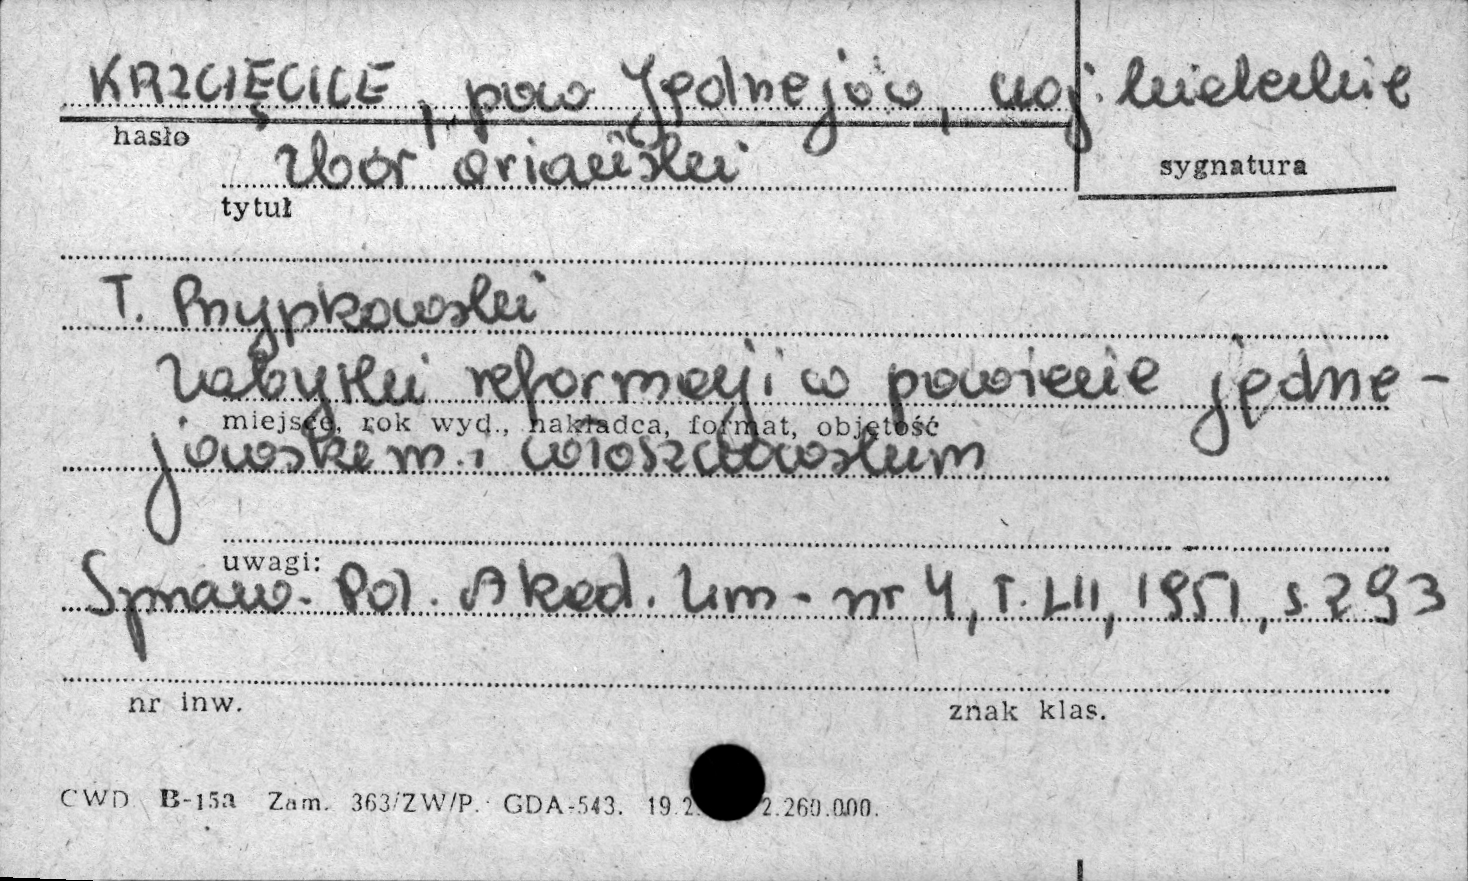 KRZCIĘCICE, pow Jędrzejów, woj. kieleckie
hasło
Zbór ariański
sygnatura
tytuł
T. Przypkowski
Zabytki reformacji w powiecie jędrze-
miejsce, rok wyd., nakładca, format, objętość
jowskim i włoszczowskim
uwagi:
Spraw. Pol. Akad. Um. nr 4, T. LII, 1951, s. 293
nr inw.
znak klas.
CWD B-15a Zam. 363/ZW/P. GDA-543. 19.2 2.260.000.